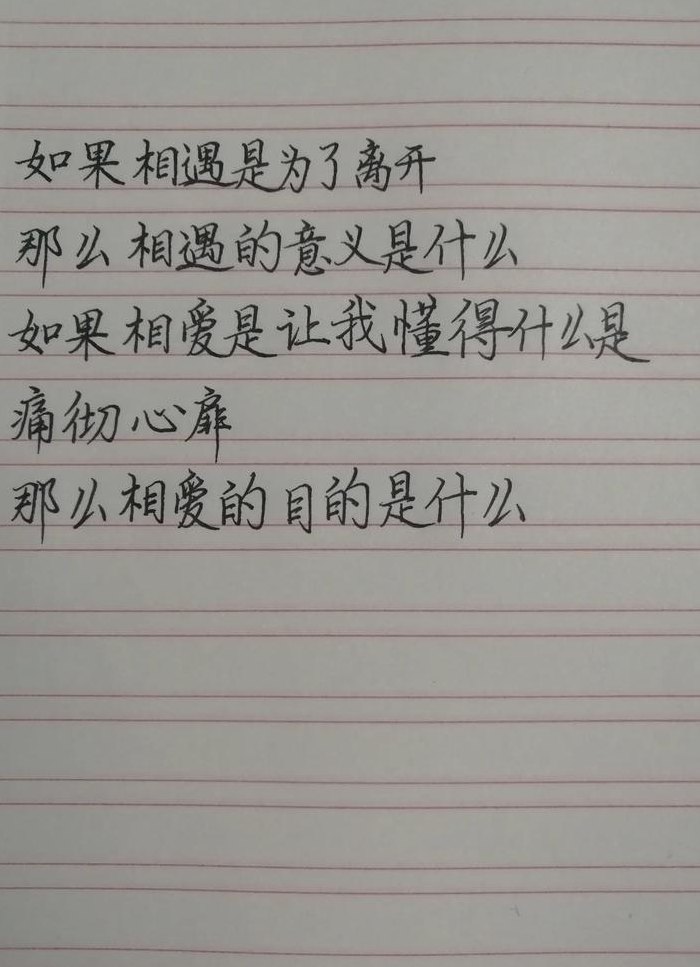 如果相遇是为了离开
那么相遇的意义是什么
如果相爱是让我懂得什么是
痛彻心扉
那么相爱的目的是什么